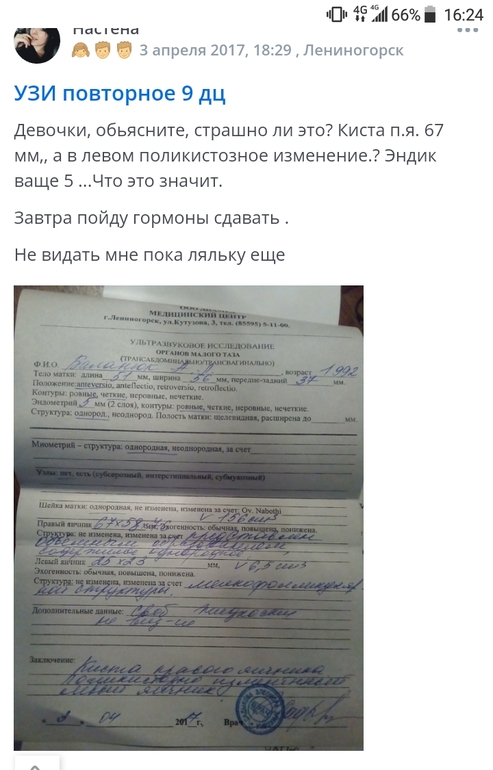 4G 4G 66% 16:24
Настёна
3 апреля 2017, 18:29 , Лениногорск
УЗИ повторное 9 дц
Девочки, обьясните, страшно ли это? Киста п.я. 67
мм,, а в левом поликистозное изменение.? Эндик
ваще 5 ...Что это значит.
Завтра пойду гормоны сдавать .
Не видать мне пока ляльку еще
МЕДИЦИНСКИЙ ЦЕНТР
г.Лениногорск, ул.Кутузова, 3, тел. (85595) 5-11-00.
УЛЬТРАЗВУКОВОЕ ИССЛЕДОВАНИЕ
ОРГАНОВ МАЛОГО ТАЗА
(ТРАНСАБДОМИНАЛЬНО/ТРАНСВАГИНАЛЬНО)
Ф.И.О. возраст 1992
Тело матки: длина 53 мм, ширина 56 мм, передне-задний 37 мм.
Положение: anteversio, anteflectio, retroversio, retroflectio.
Контуры: ровные, четкие, неровные, нечеткие.
Эндометрий 5 мм (2 слоя), контуры: ровные, четкие, неровные, нечеткие.
Структура: однород., неоднород. Полость матки: щелевидная, расширена до мм.
Миометрий – структура: однородная, неоднородная, за счет
Узлы: нет, есть (субсерозный, интерстициальный, субмукозный)
Шейка матки: однородная, не изменена, изменена за счет: Ov. Nabothi
V 156 см3
Правый яичник 67х58х мм. Эхогенность: обычная, повышена, понижена.
Структура: не изменена, изменена за счет
содержимое однородное
Левый яичник 25х23 мм, V 6,5 см3
Эхогенность: обычная, повышена, понижена.
Структура: не изменена, изменена за счет мелкофолликуляр
ной структуры.
Дополнительные данные: Своб жидкости
не виз-ся
Заключение: Киста правого яичника
Поликистозно измененного
левый яичник
04 2017 г. Врач